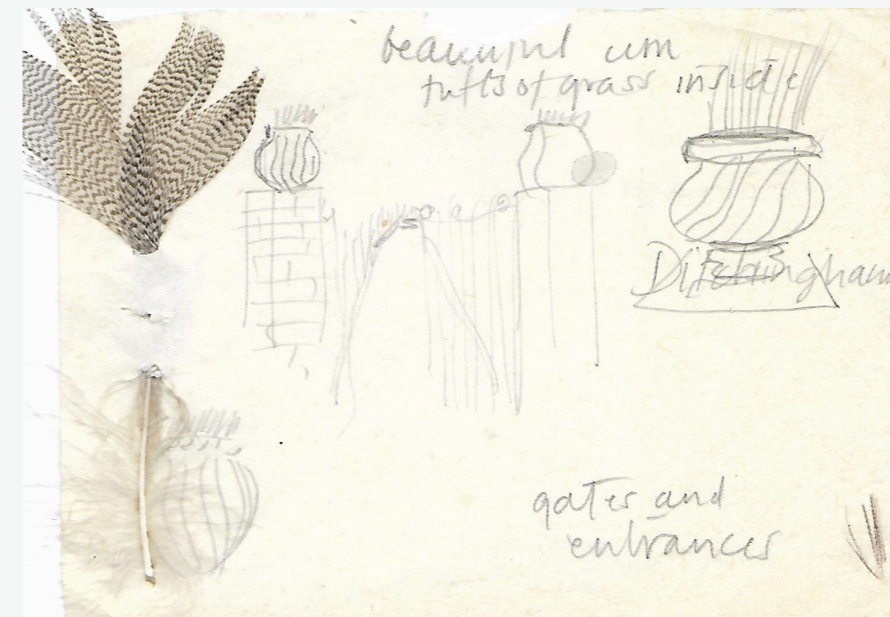 beautiful urn
tufts of grass inside
Ditchingham
gates and
entrances